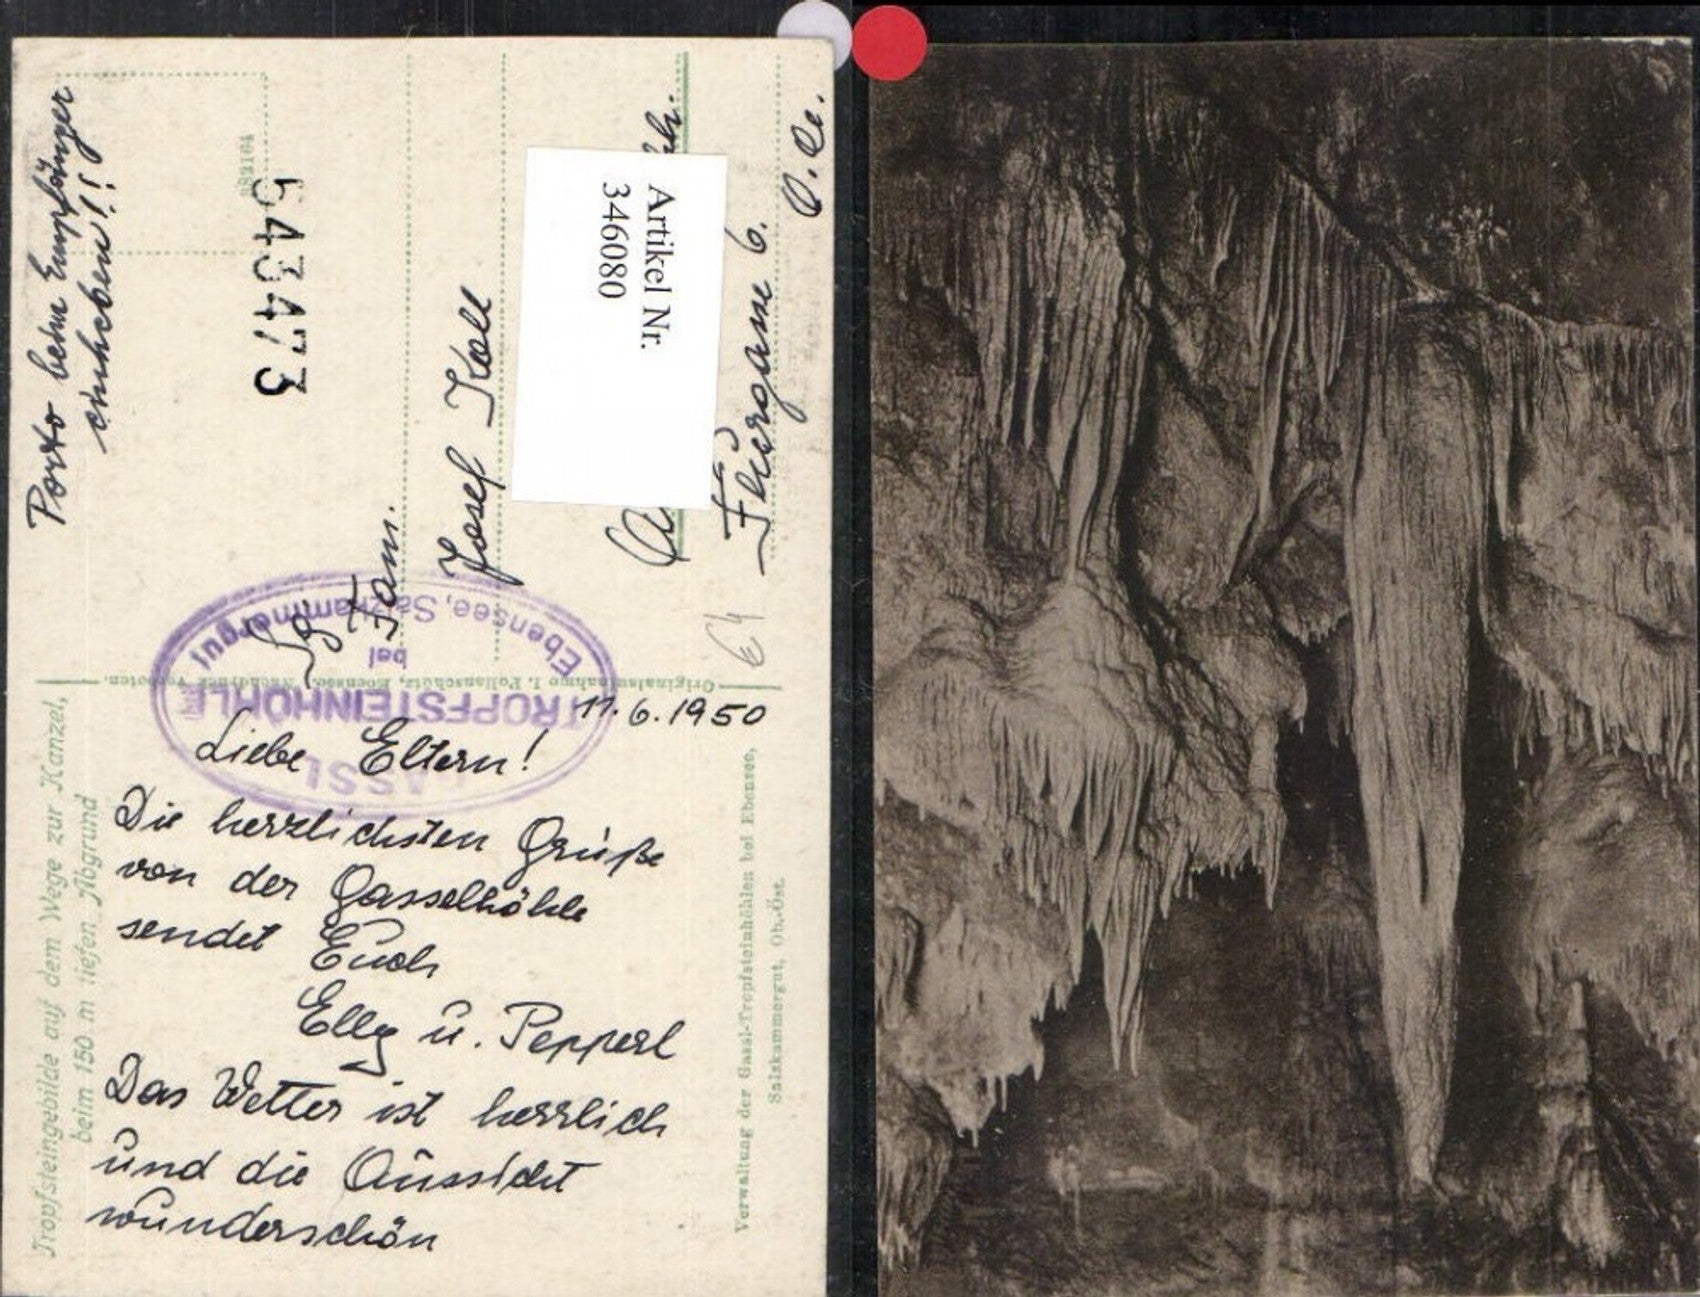 Tropfsteingebilde auf dem Wege zur Kanzel,
beim 150 m tiefen Abgrund
11.6.1950
Liebe Eltern!
Die herzlichsten Grüße
von der Gasselhöhle
sendet Euch
Elly u. Pepperl
Das Wetter ist herrlich
und die Aussicht
wunderschön
Verwaltung der Gassl-Tropfsteinhöhlen bei Ebensee,
Salzkammergut, Ob.-Öst.
Originalaufnahme J. Pollanschütz, Ebensee. Nachdruck verboten.
GASSL
TROPFSTEINHÖHLE
bei
Ebensee, Salzkammergut
Porto beim Empfänger
einheben!!!
543473
Fam.
Josef Koll
Feuergasse 6.
O.Oe.
Artikel Nr.
346080